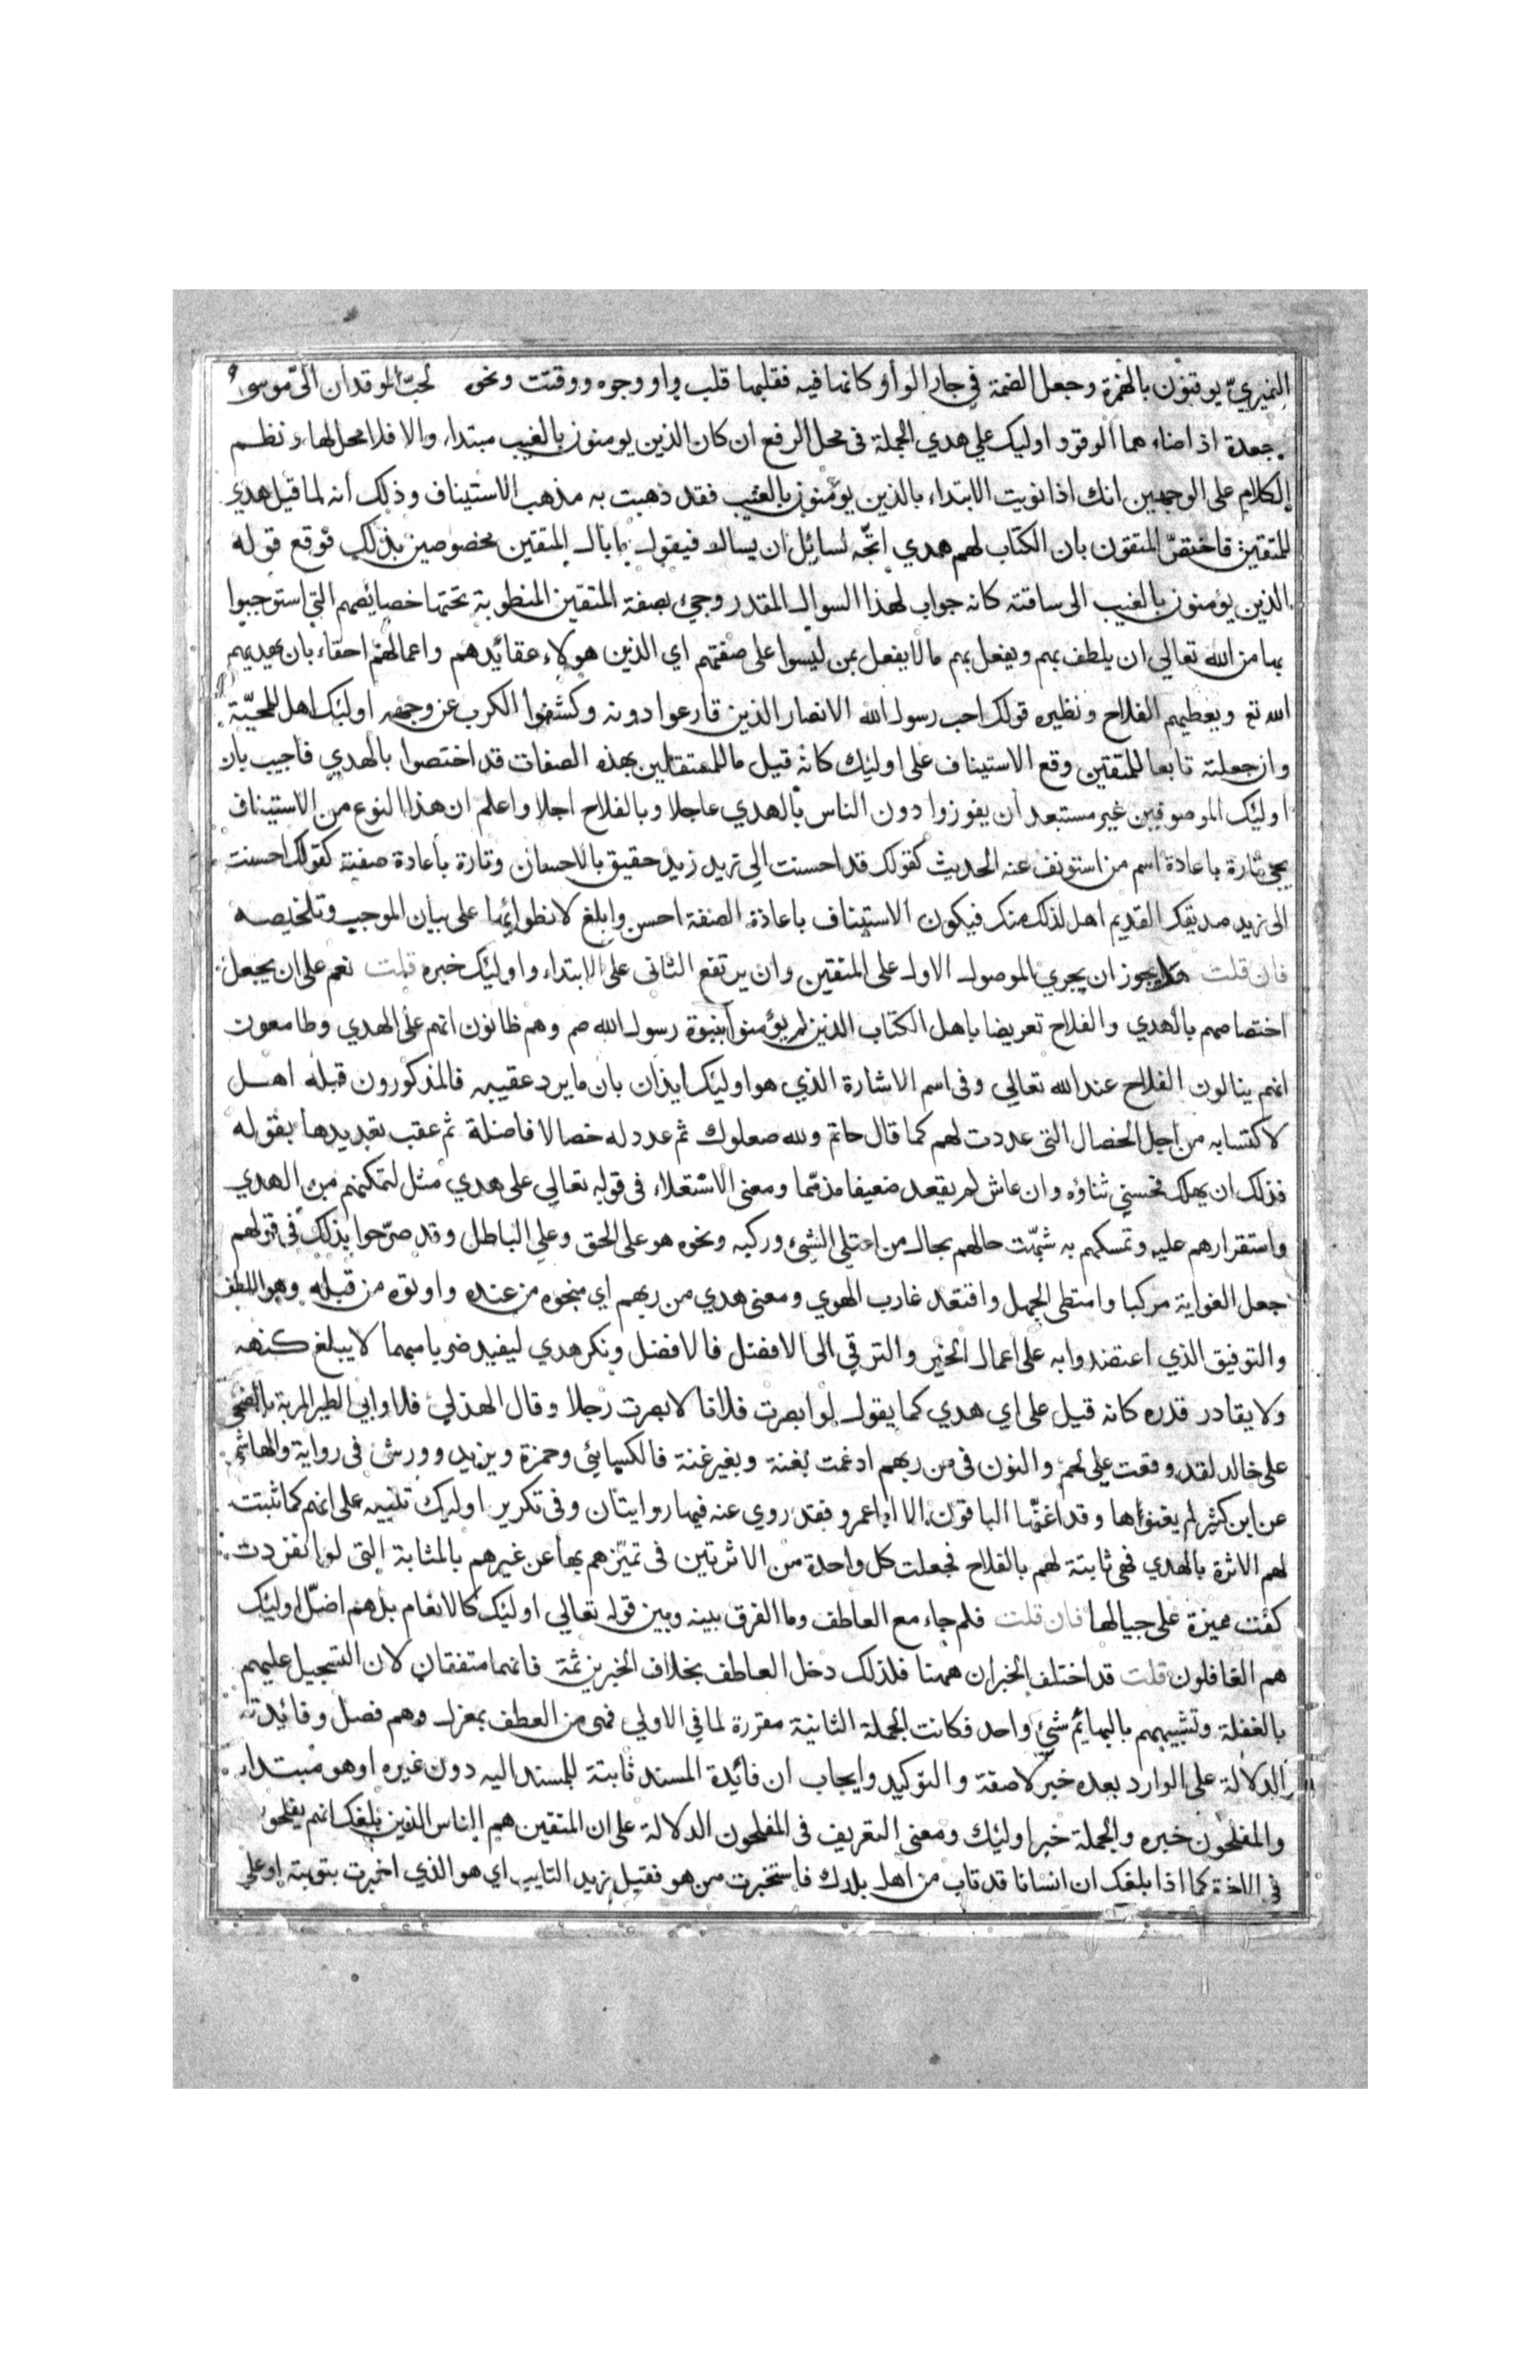 النميريّ يوقنون بالهمزة وجعل الضمة في جار الواو كانها فيه فقلبها قلب واو وجوه ووقتت ونحوه لحبّ الموقدان اليّ موسى و
جعدة اذ اضاء هما الوقود اوليك علي هدي الجملة في محل الرفع ان كان الذين يومنون بالغيب مبتداء والا فلا محل لها ونظم
الكلام على الوجهين انك اذا نويت الابتداء بالذين يؤمنون بالغيب فقد ذهبت به مذهب الاستيناف وذلك أنه لما قيل هدي
للمتقين فاختصّ المتقون بان الكتاب لهم هدي اتّجه لسائل ان يسال فيقول ما بال المتقين مخصوصين بذلك فوقع قوله
الذين يؤمنون بالغيب الى ساقته كانه جواب لهذا السوال المقدر وجيء بصفة المتقين المنطوية تحتها خصائصهم التي استوجبوا
بها من الله تعالي ان يلطف بهم ويفعل بهم مالا يفعل بمن ليسوا على صفتهم اي الذين هولاء عقائدهم واعمالهم احقاء بان يهديهم
الله تع ويعطيهم الفلاح ونظيره قولك احب رسول الله الانصار الذين قارعوا دونه وكشفوا الكرب عن وجهه اولئك اهل للمحبّة
وان جعلته تابعا للمتقين وقع الاستيناف على اوليك كانه قيل ما للمستقلين بهذه الصفات قد اختصوا بالهدي فاجيب بان
اوليك الموصوفين غير مستبعد أن يفوزوا دون الناس بالهدي عاجلا وبالفلاح اجلا واعلم ان هذا النوع من الاستيناف
يجي تارة باعادة اسم من استونف عنه الحديث كقولك قد احسنت الي زيد زيد حقيق بالاحسان وتارة بأعادة صفته كقولك احسنت
الى زيد صديقك القديم اهل لذلك منك فيكون الاستيناف باعادة الصفة احسن وابلغ لانطوائها على بيان الموجب وتلخيصه
فان قلت هل يجوز ان يجري الموصول الاول على المتقين وان يرتفع الثاني على الابتداء واوليك خبره قلت نعم على ان يجعل
اختصاصهم بالهدي والفلاح تعريضا باهل الكتاب الذين لم يؤمنوا بنبوة رسول الله صم وهم ظانون انهم على الهدي وطامعون
انهم ينالون الفلاح عند الله تعالي وفي اسم الاشارة الذي هو اوليك ايذان بان ما يرد عقيبه فالمذكورون قبله اهل
لاكتسابه من اجل الخصال التي عددت لهم كما قال حاتم ولله صعلوك ثم عدد له خصالا فاضلة ثم عقب تعديدها بقوله
فذلك ان يهلك فحسني ثناؤه وان عاش لم يقعد ضعيفا مذمّما ومعنى الاستعلاء في قوله تعالي على هدي مثل لتمكنهم من الهدي
واستقرارهم عليه وتمسكهم به شبّهت حالهم بحال من اعتلي الشيء وركبه ونحوه هو على الحق وعلي الباطل وقد صرّحوا بذلك في قولهم
جعل الغواية مركبا وامتطى الجهل واقتعد غارب الهوي ومعنى هدي من ربهم اي منحوه من عنده واوتوه من قبله وهو اللطف
والتوفيق الذي اعتضدوا به على اعمال الخير والترقي الى الافضل فالافضل ونكر هدي ليفيد ضربا مبهما لا يبلغ كنهه
ولا يقادر قدره كانه قيل على اي هدي كما يقول لو ابصرت فلانا لابصرت رجلا وقال الهذلي فلا وابي الطير المربة بالضحي
على خالد لقد وقعت على لحم والنون في من ربهم ادغمت بغنة وبغير غنة فالكسائي وحمزة ويزيد وورش في رواية والهاشمي
عن ابن كثير لم يغنوها وقد اغنّها الباقون الا ابا عمرو فقد روي عنه فيها روايتان وفي تكرير اوليك تنبيه على انهم كما ثبتت
لهم الاثرة بالهدي فهي ثابتة لهم بالفلاح فجعلت كل واحدة من الاثرتين في تميّزهم بها عن غيرهم بالمثابة التي لو انفردت
كفت مميزة على حيالها فان قلت فلم جاء مع العاطف وما الفرق بينه وبين قوله تعالي اوليك كالانعام بل هم اضلّ اوليك
هم الغافلون قلت قد اختلف الخبران ههنا فلذلك دخل العاطف بخلاف الخبرين ثمة فانهما متفقان لان التسجيل عليهم
بالغفلة وتشبيههم بالبهائم شيء واحد فكانت الجملة الثانية مقررة لما في الاولي فهي من العطف بمعزل وهم فصل وفائدته
الدلالة على الوارد بعده خبر لا صفة والتوكيد وايجاب ان فائدة المسند ثابتة للمسند اليه دون غيره او هو مبتداء
والمفلحون خبره والجملة خبر اوليك ومعنى التعريف في المفلحون الدلالة على ان المتقين هم الناس الذين بلغك انهم يفلحون
في الاخرة كما اذا بلغك ان انسانا قد تاب من اهل بلدك فاستخبرت من هو فقيل زيد التايب اي هو الذي اخبرت بتوبته او على